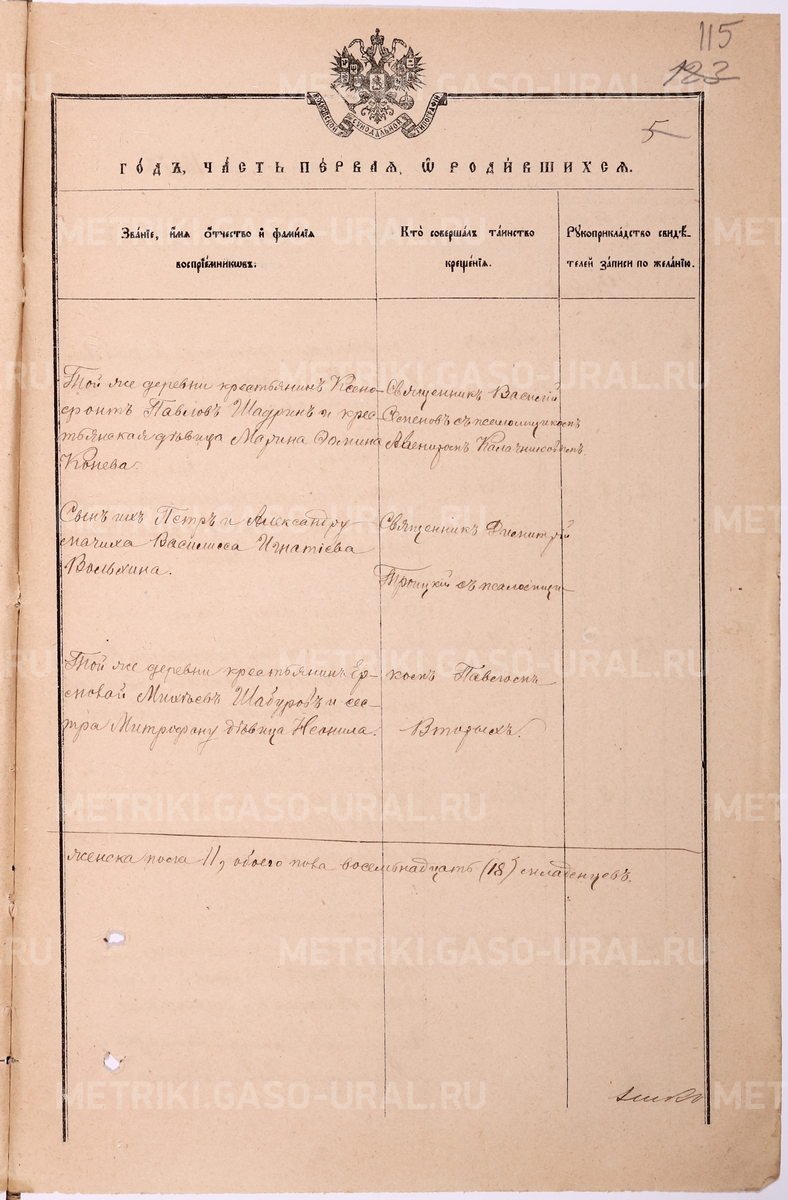 115
123
5
РОССІЙСКОЙ СѴНОДАЛЬНОЙ ТИПОГРАФІИ
ГО́ДЪ, ЧА́СТЬ ПЕ́РВАѦ, Ѡ҆ РОДИ́ВШИХСѦ.
Зва́нїе, и҆́мѧ ѻ҆́тчество и҆ фами́лїѧ
воспрїе́мникѡвъ.
Кто̀ соверша́лъ та́инство
креще́нїѧ.
Рꙋкоприкла́дство свидѣ́-
телей за́писи по жела́нїю.
Той же деревни крестьянинъ Ксено-
фронтъ Павловъ Шадринъ и крес-
тьянская дѣвица Марина Фомина
Конева.
Священникъ Василій
Семеновъ съ псаломщикомъ
Авениромъ Калачниковымъ
Сынъ ихъ Петръ и Александру
мачиха Василисса Игнатіева
Вольхина.
Священникъ Димитрій
Троицкій съ псаломщи-
Той же деревни крестьянинъ Ер-
молай Михѣевъ Шабуровъ и сес-
тра Митрофану дѣвица Неонила.
комъ Павломъ
Вторыхъ.
женска пола 11, обоего пола восемьнадцать (18) младенцевъ.
METRIKI.GASO-URAL.RU